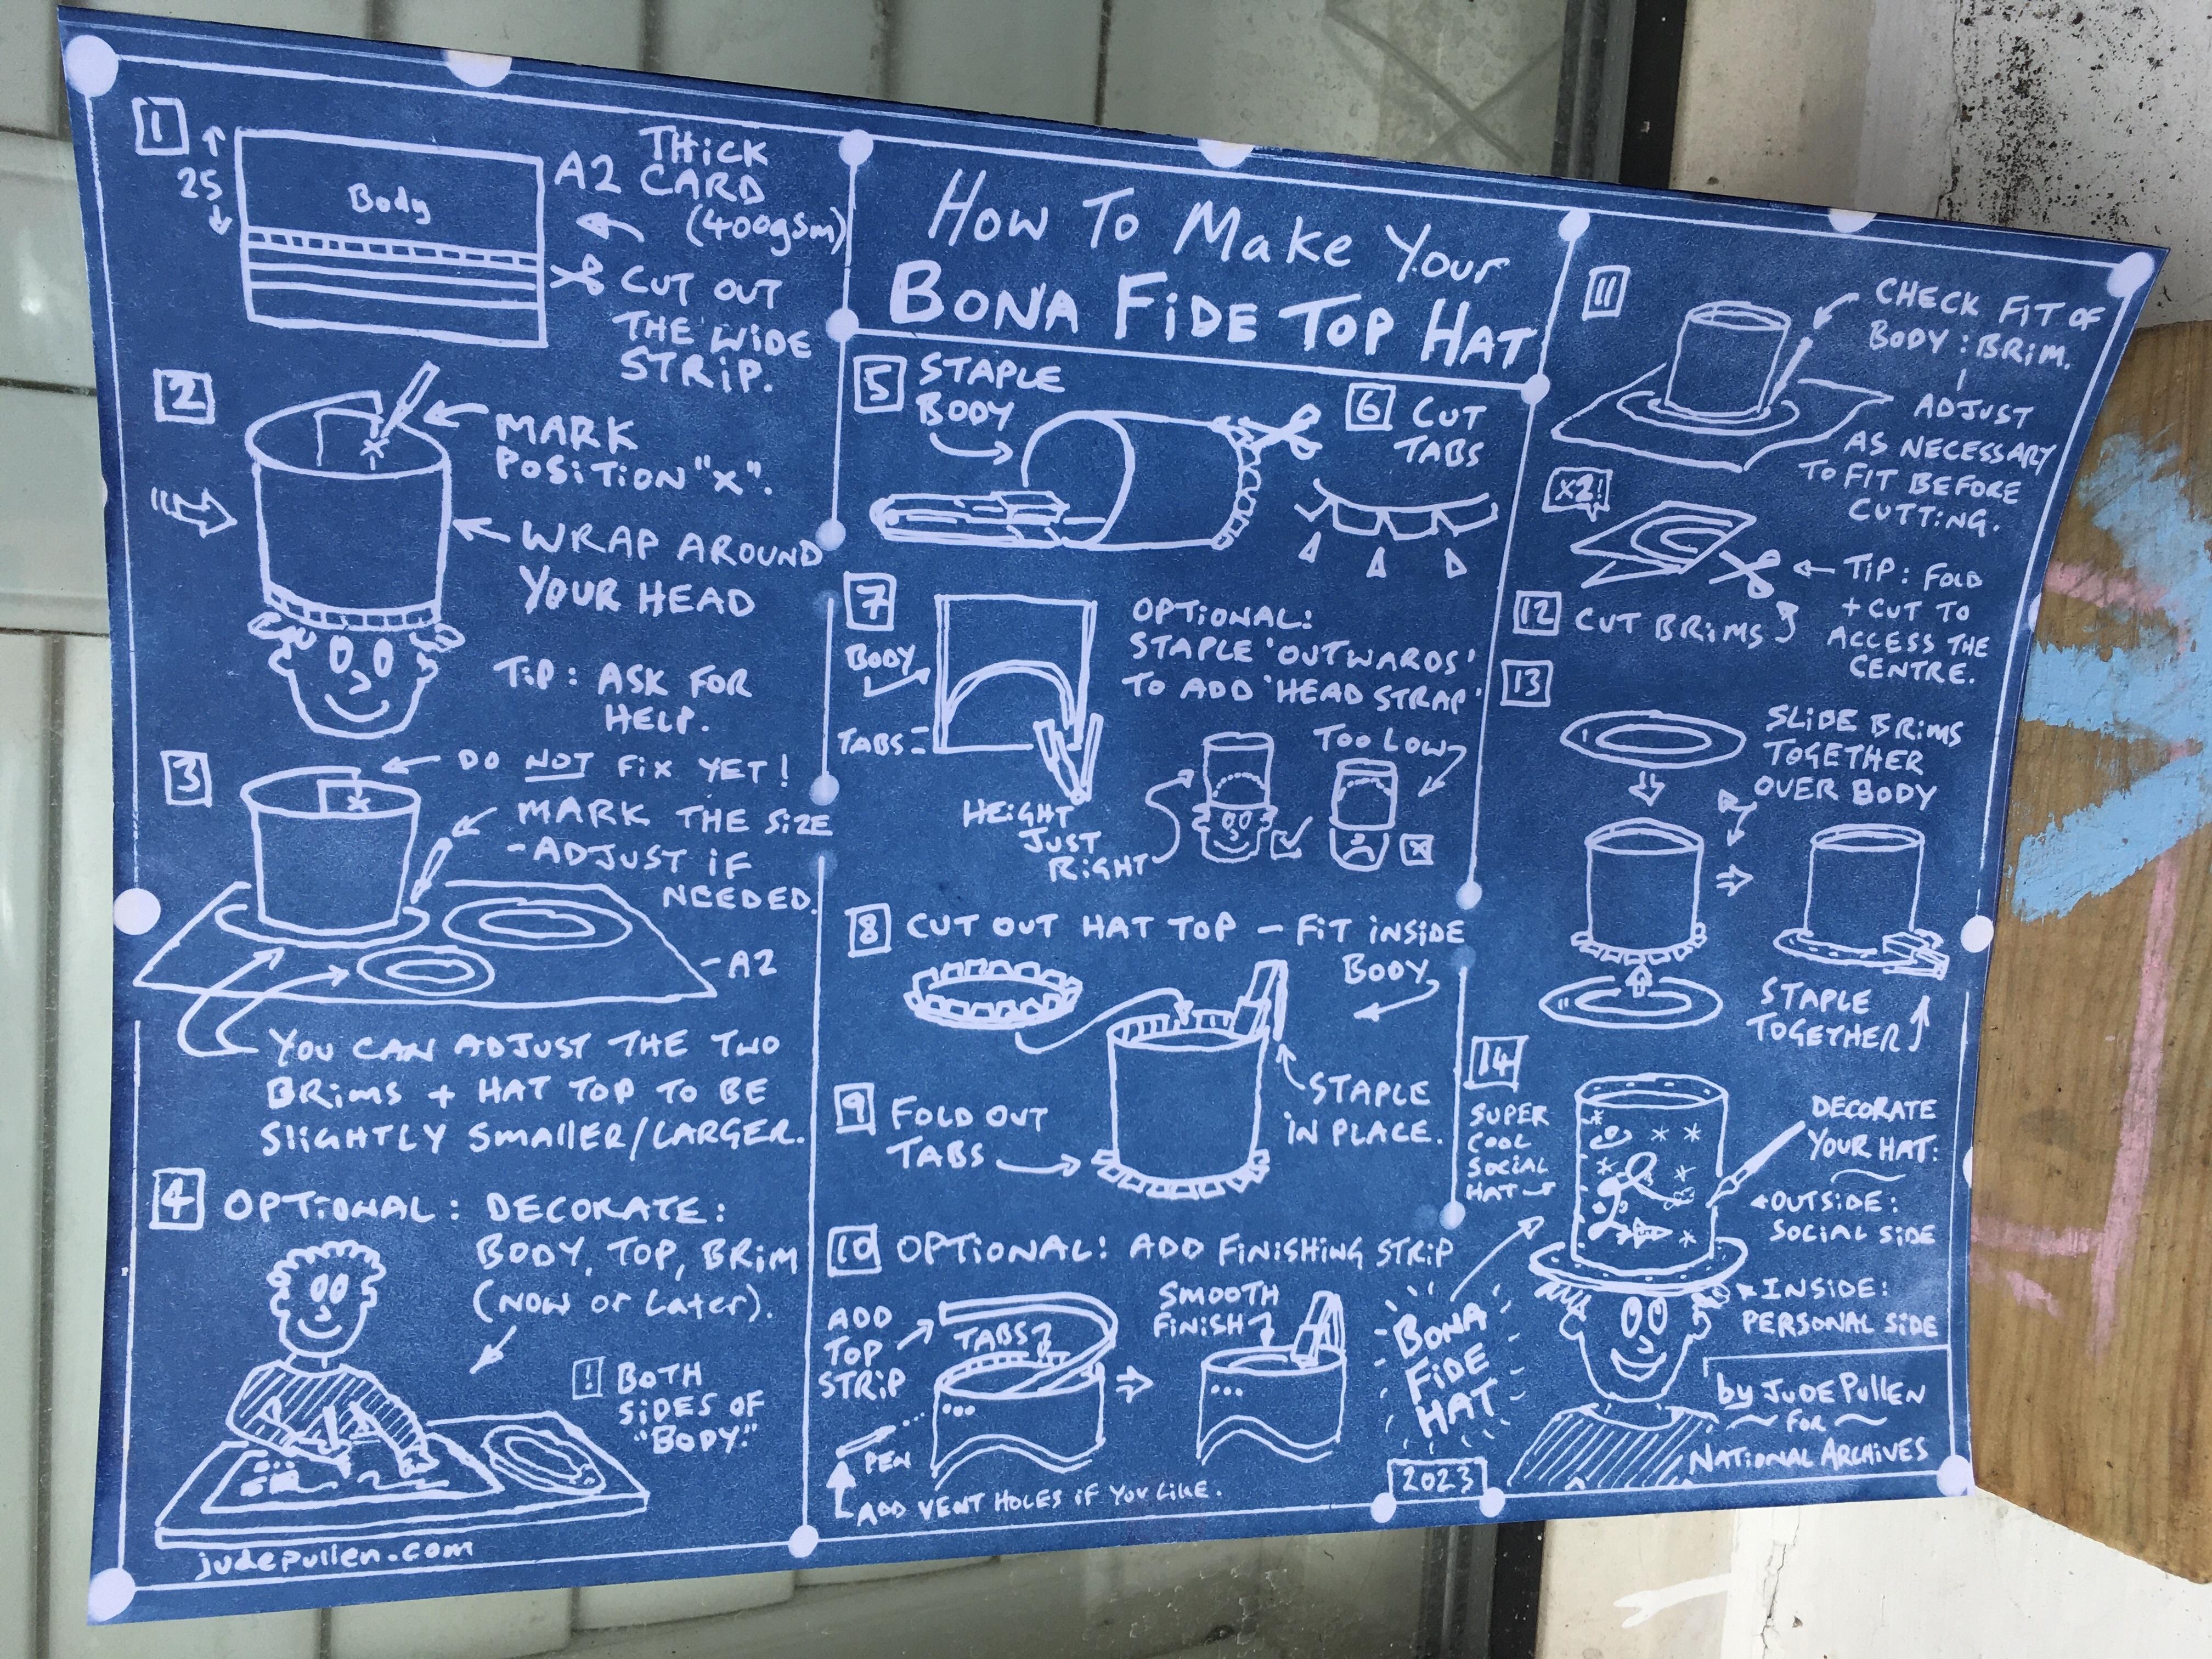 How To Make Your
BONA FIDE TOP HAT
1
25
Body
A2 THICK
CARD
(400gsm)
CUT OUT
THE WIDE
STRIP.
2
MARK
POSITION "X".
X
WRAP AROUND
YOUR HEAD
TIP: ASK FOR
HELP.
3
DO NOT FIX YET!
X
MARK THE SIZE
- ADJUST IF
NEEDED.
A2
YOU CAN ADJUST THE TWO
BRIMS + HAT TOP TO BE
SLIGHTLY SMALLER/LARGER.
4
OPTIONAL: DECORATE:
BODY, TOP, BRIM
(NOW or Later).
! BOTH
SIDES OF
"BODY."
judepullen.com
5
STAPLE
BODY
6
CUT
TABS
7
BODY
TABS
OPTIONAL:
STAPLE 'OUTWARDS'
TO ADD 'HEAD STRAP'
TOO LOW
HEIGHT
JUST
RIGHT
8
CUT OUT HAT TOP - FIT INSIDE
BODY
STAPLE
IN PLACE.
9
FOLD OUT
TABS
10
OPTIONAL: ADD FINISHING STRIP
ADD
TOP
STRIP
TABS
SMOOTH
FINISH
PEN
ADD VENT HOLES IF YOU LIKE.
11
CHECK FIT OF
BODY : BRIM.
ADJUST
AS NECESSARY
TO FIT BEFORE
CUTTING.
X2!
12
CUT BRIMS
TIP: FOLD
+ CUT TO
ACCESS THE
CENTRE.
13
SLIDE BRIMS
TOGETHER
OVER BODY
STAPLE
TOGETHER
14
SUPER
COOL
SOCIAL
HAT
DECORATE
YOUR HAT:
OUTSIDE:
SOCIAL SIDE
INSIDE:
PERSONAL SIDE
BONA
FIDE
HAT
2023
by JUDE PULLEN
FOR
NATIONAL ARCHIVES